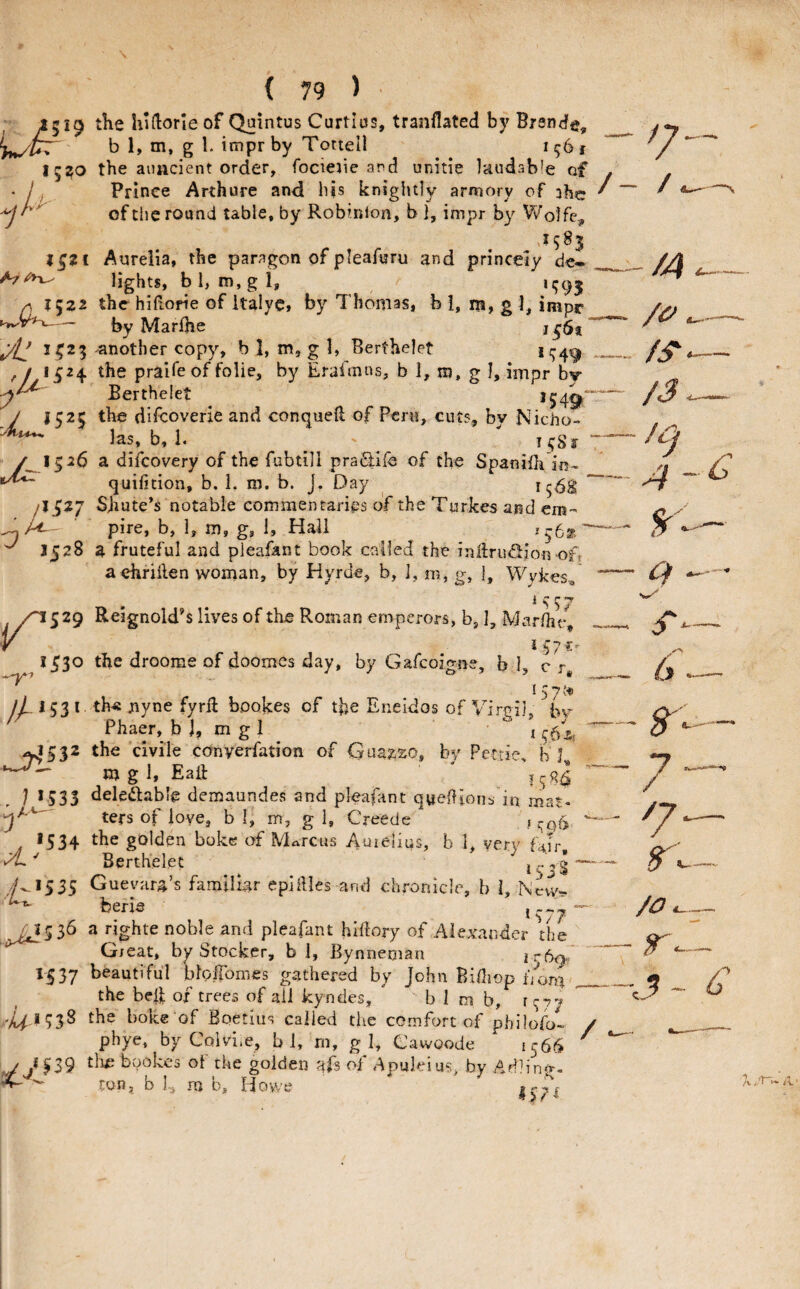 ( 79 )
1519 the hiſtorie of Quintus Curtius, tranſlated by Brende,
b l, m, g l. impr by Tottell 1561
17—
1520 the auncient order, ſocietie and unitie laudable of
Prince Arthure and his knightly armory of the
of the round table, by Robinſon, b l, impr by Wolfe,
1583
1 — 1 —
1521 Aurelia, the paragon of pleaſuru and princely de-
lights, b l, m, g l, 1593
14 —
1522 the hiſtorie of Italye, by Thomas, b l, m, g l, impr
by Marſhe 1561
10 —
1523 another copy, b l, m, g l, Berthelet 1549
15 —
1524 the praiſe of folie, by Eraſmus, b l, m, g l, impr by
Berthelet 1549
13 —
1525 the diſcoverie and conqueſt of Peru, cuts, by Nicho-
las, b, l. 1581
19
1526 a diſcovery of the ſubtill practiſe of the Spaniſh in-
quiſition, b. l. m. b. J. Day 1568
4 - 6
1527 Shute's notable commentaries of the Turkes and em-
pire, b, l, m, g, l, Hall 1562
8 —
1528 a fruteful and pleaſant book called the inſtruction of
a chriſten woman, by Hyrde, b, l, m, g, l, Wykes,
1557
9 —
1529 Reignold's lives of the Roman emperors, b, l, Marſhe,
1571
5 —
1530 the droome of doomes day, by Gaſcoigne, b l, c r,
157
6 —
1531 the nyne fyrſt bookes of the Eneidos of Virgil, by
Phaer, b l, m g l 1562
8 —
1532 the civile converſation of Guazzo, by Pettie, b l,
m g l, Eaſt 1586
7 —
1533 delectable demaundes and pleaſant queſtions in mat-
ters of love, b l, m, g l, Creede 1596
17 —
1534 the golden boke of Marcus Aurelius, b l, very fair,
Berthelet 1538
8 —
1535 Guevara's familiar epiſtles and chronicle, b l, New-
berie 1577
10 —
1536 a righte noble and pleaſant hiſtory of Alexander the
Great, by Stocker, b l, Bynneman 1569
8 —
1537 beautiful bloſſomes gathered by John Biſhop from
the beſt of trees of all kyndes, b l m b, 1577
3 - 6
1538 the boke of Boetius called the comfort of philoſo-
phye, by Colvile, b l, m, g l, Cawoode 1566
1539 the bookes of the golden aſs of Apuleius, by Adling-
ton, b l, m b, Howe 1571